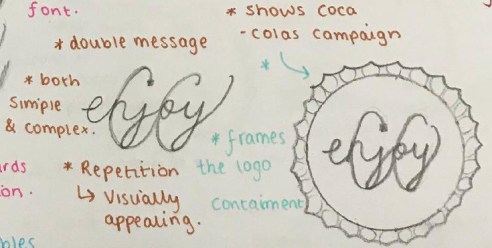 font.
* double message
* shows Coca
- colas campaign
*
* both
Simple
& complex.
enjoy
* frames
the logo
Contaiment
enjoy
* Repetition
↳ Visually
appealing.
ards
ion.
bles